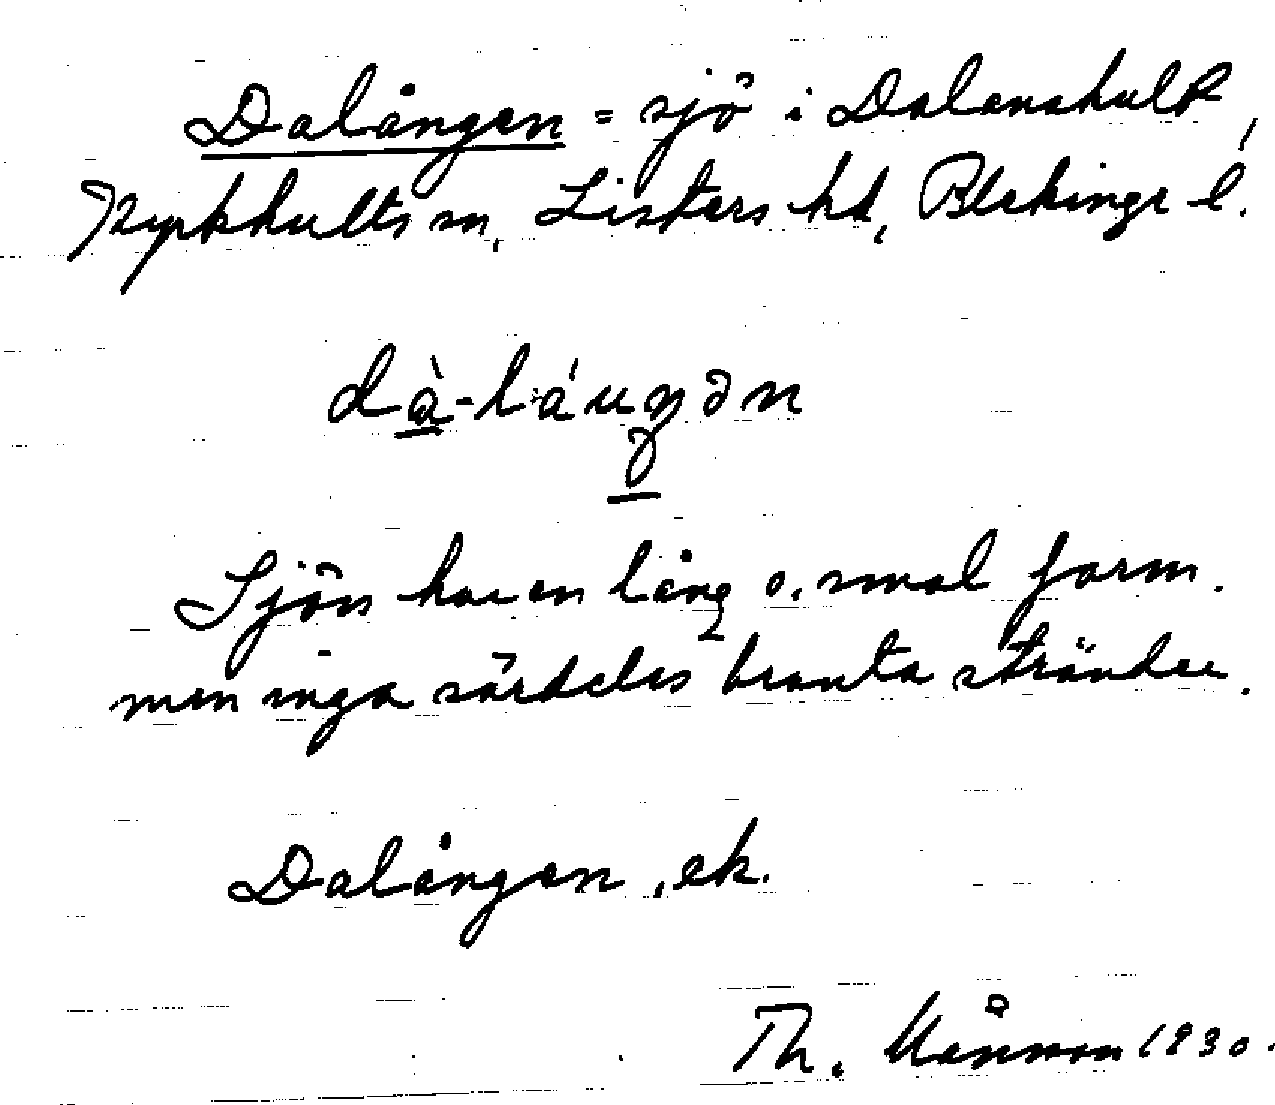 Dalången = sjö i Dalanshult,
Kyrkhults sn, Listers hd, Blekinge l.
dà-láuŋən
Sjön har en lång o. smal form.
men inga särdeles branta stränder.
Dalången, ek.
Th. 1930.